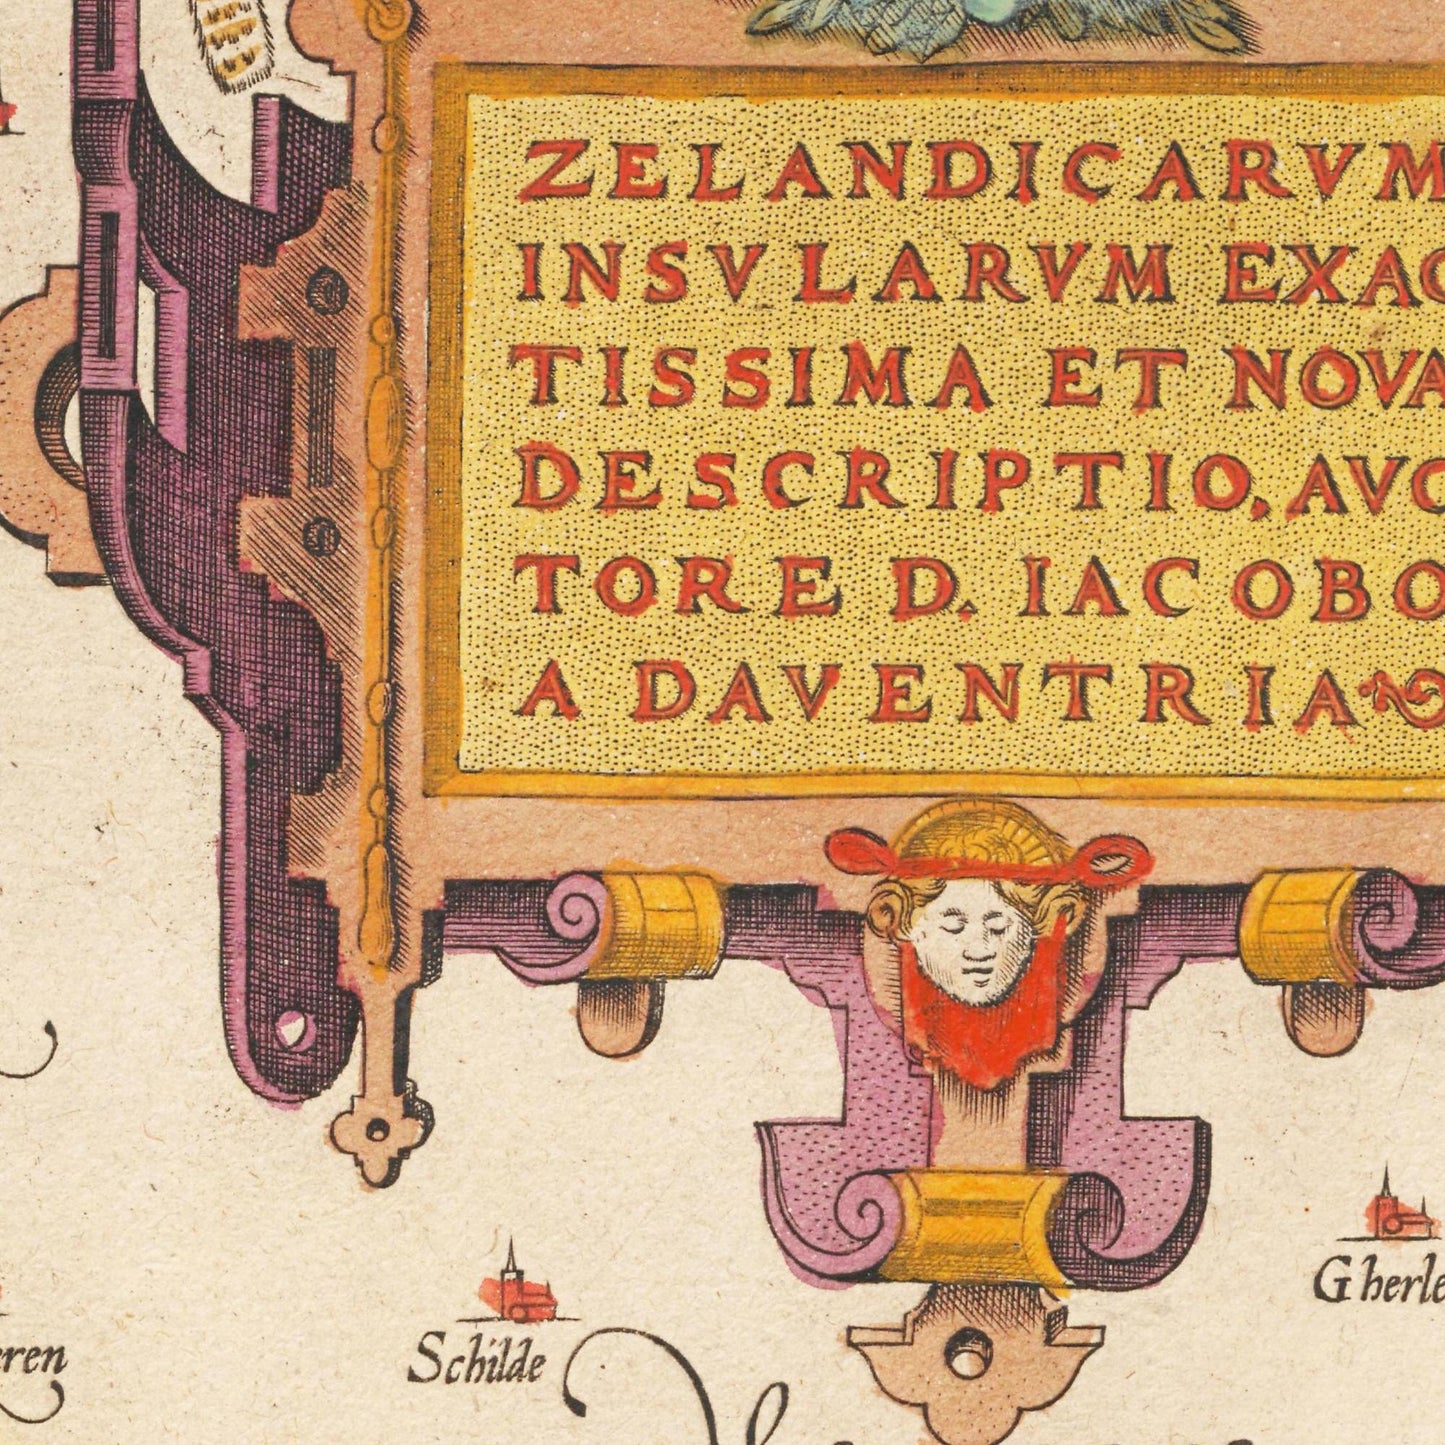 ZELANDICARVM
INSVLARVM EXAC
TISSIMA ET NOVA
DESCRIPTIO, AVC
TORE D. IACOBO
A DAVENTRIA
Gherle
eren
Schilde